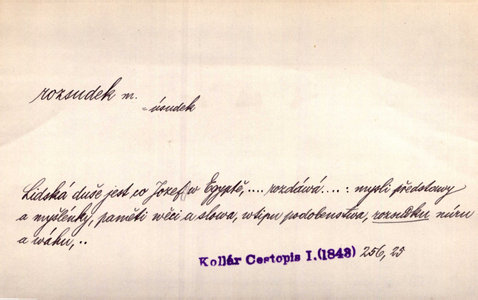 rozsudek m.
úsudek
Lidská duše jest co Jozef w Egyptě, .... rozdáwá .... : mysli předstawy
a myšlénky, paměti wěci a slowa, wtipu podobenstwa, rozsudku míru
a wáhu, ..
Kollár Cestopis I. (1843) 256, 25